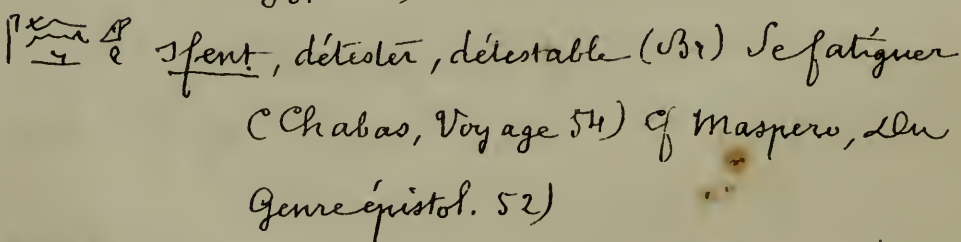 sfent, détester, détestable (Br) Se fatiguer
(Chabas, Voyage 54) cf Maspero, Du
Genre épistol. 52)